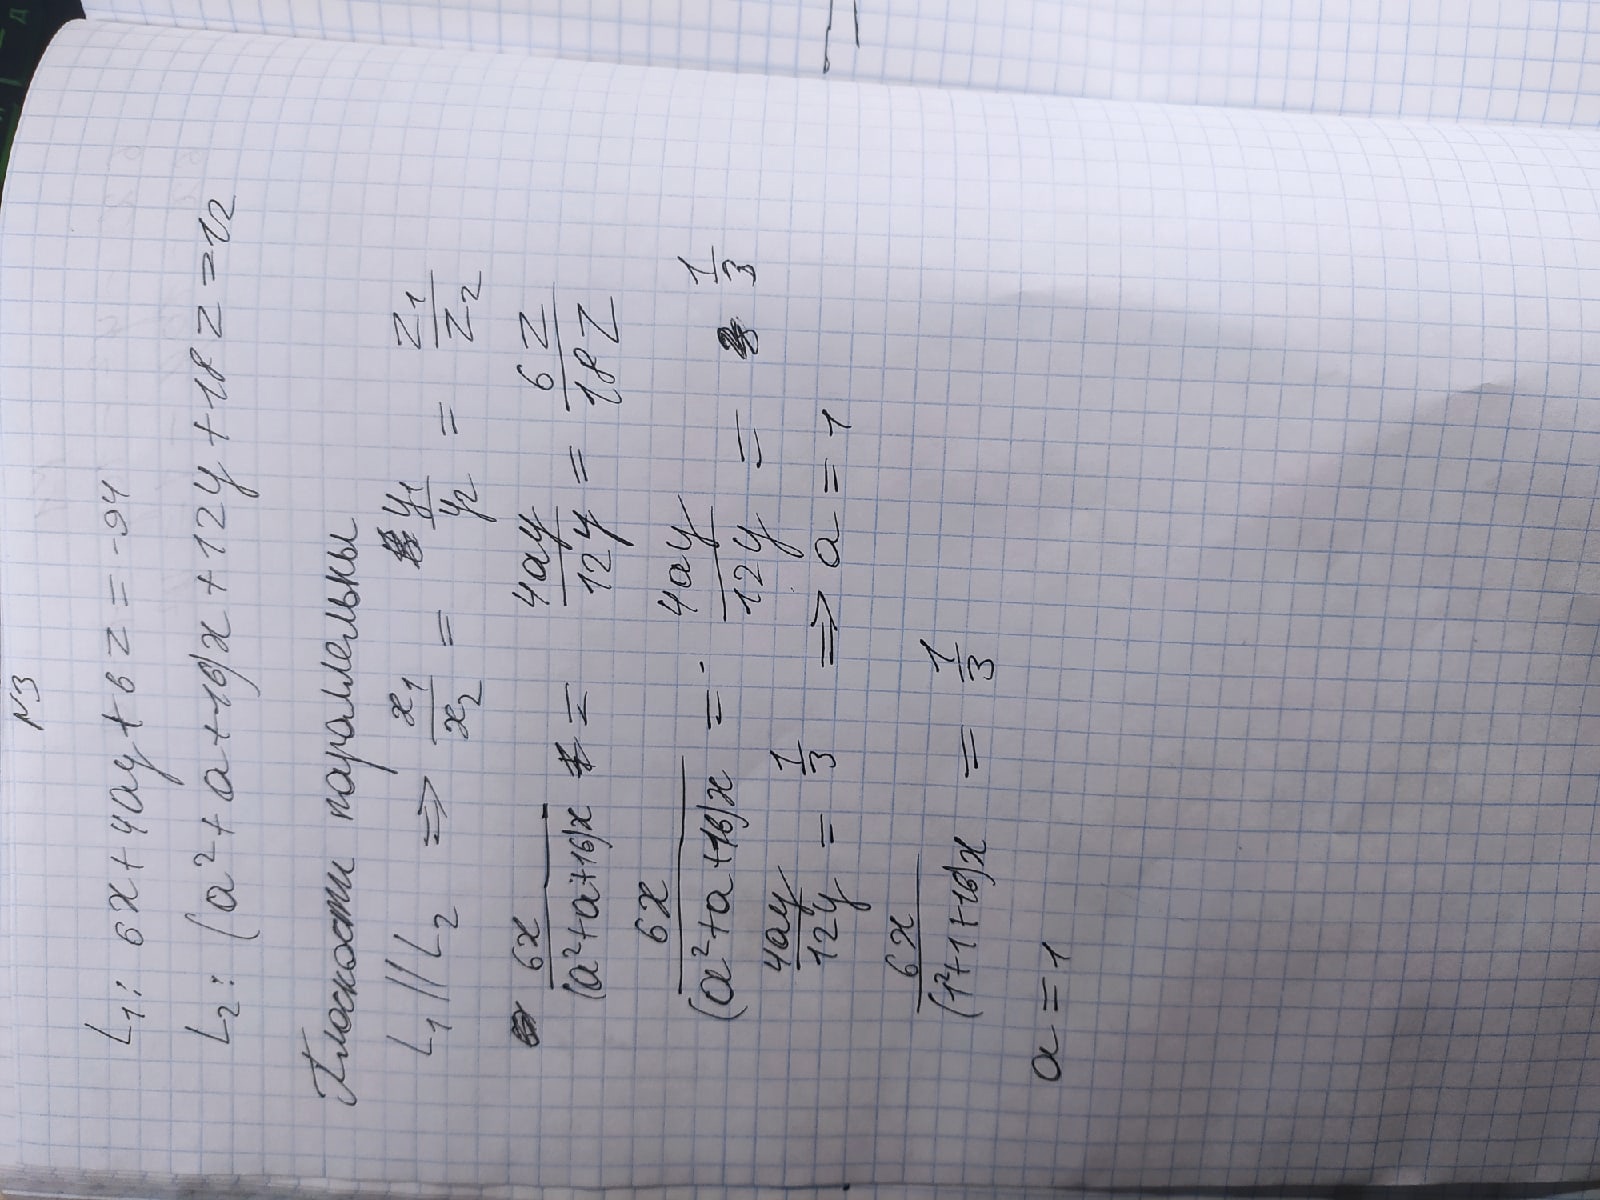 N3
L₁: 6x + 4ay + 6z = -94
L₂: (a² + a + 16)x + 12y + 18z = 12
Плоскости параллельны
L₁ || L₂ => x₁/x₂ = y₁/y₂ = z₁/z₂
6x/(a²+a+16)x = 4ay/12y = 6z/18z
6x/(a²+a+16)x = 4ay/12y = 1/3
4ay/12y = 1/3 => a = 1
6x/(1²+1+16)x = 1/3
a = 1